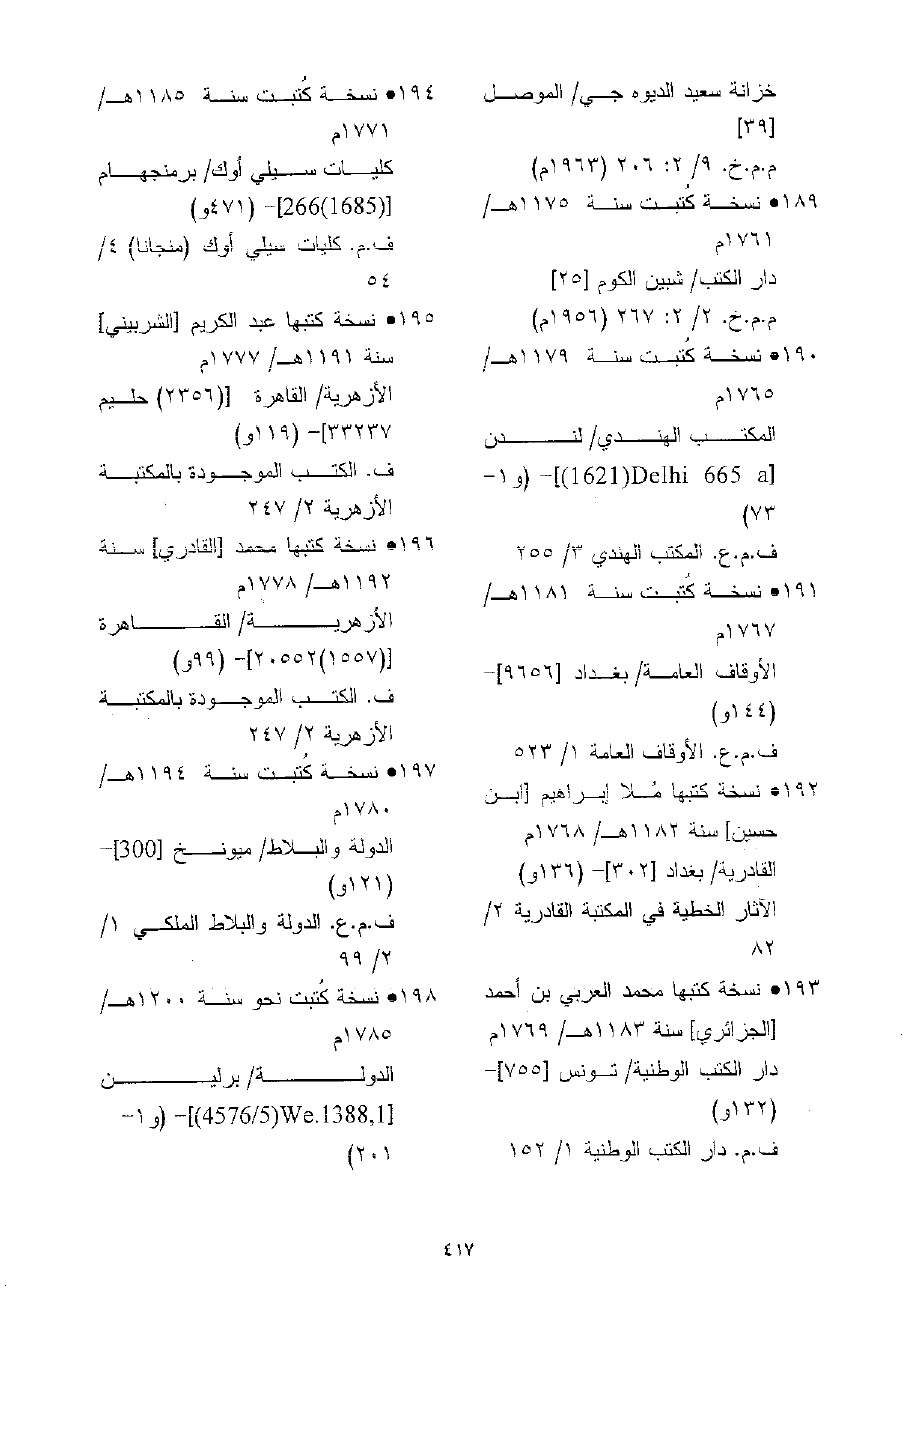 خزانة سعيد الديوه جي/ الموصل
[٣٩]
م.م.خ. ٩/ ٢: ٢٠٦ (١٩٦٣م)
١٨٩• نسخة كُتبت سنة ١١٧٥هـ/
١٧٦١م
دار الكتب/ شبين الكوم [٢٥]
م.م.خ. ٢/ ٢: ٢٦٧ (١٩٥٦م)
١٩٠• نسخة كُتبت سنة ١١٧٩هـ/
١٧٦٥م
المكتب الهندي/ لندن
[Delhi 665 a(1621)]- (و١-
٧٣)
ف.م.ع. المكتب الهندي ٣/ ٢٥٥
١٩١• نسخة كُتبت سنة ١١٨١هـ/
١٧٦٧م
الأوقاف العامة/ بغداد [٩٦٥٦]-
(١٤٤و)
ف.م.ع. الأوقاف العامة ١/ ٥٢٣
١٩٢• نسخة كتبها مُلا إبراهيم [ابن
حسين] سنة ١١٨٢هـ/ ١٧٦٨م
القادرية/ بغداد [٣٠٢]- (١٣٦و)
الآثار الخطية في المكتبة القادرية ٢/
٨٢
١٩٣• نسخة كتبها محمد العربي بن أحمد
[الجزائري] سنة ١١٨٣هـ/ ١٧٦٩م
دار الكتب الوطنية/ تونس [٧٥٥]-
(١٣٢و)
ف.م. دار الكتب الوطنية ١/ ١٥٢
١٩٤• نسخة كُتبت سنة ١١٨٥هـ/
١٧٧١م
كليات سيلي أوك/ برمنجهام
[266(1685)]- (٤٧١و)
ف.م. كليات سيلي أوك (منجانا) ٤/
٥٤
١٩٥• نسخة كتبها عبد الكريم [الشربيني]
سنة ١١٩١هـ/ ١٧٧٧م
الأزهرية/ القاهرة [(٢٣٥٦) حليم
٣٣٢٣٧]- (١١٩و)
ف. الكتب الموجودة بالمكتبة
الأزهرية ٢/ ٢٤٧
١٩٦• نسخة كتبها محمد [القادري] سنة
١١٩٢هـ/ ١٧٧٨م
الأزهرية/ القاهرة
[(١٥٥٧)٢٠٥٥٢]- (٩٩و)
ف. الكتب الموجودة بالمكتبة
الأزهرية ٢/ ٢٤٧
١٩٧• نسخة كُتبت سنة ١١٩٤هـ/
١٧٨٠م
الدولة والبلاط/ ميونخ [300]-
(١٢١و)
ف.م.ع. الدولة والبلاط الملكي ١/
٢/ ٩٩
١٩٨• نسخة كُتبت نحو سنة ١٢٠٠هـ/
١٧٨٥م
الدولة/ برلين
[We.1388,1(4576/5)]- (و١-
٢٠١)
٤١٧